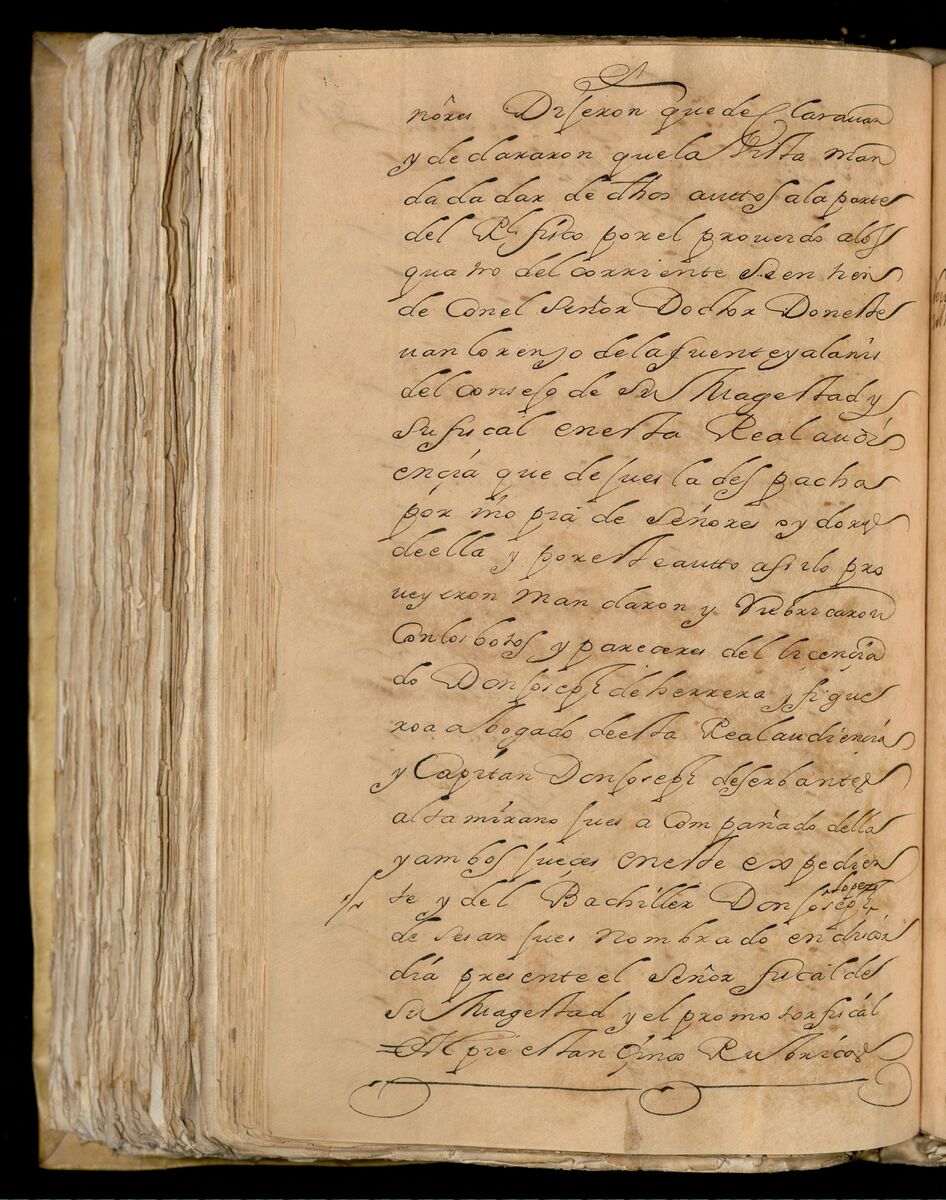 nōres Dixeron que desclarauan
y declararon que la Vista man
dada dar de dhos auttos a la parte
del Rl. fisco por el proueido a los
quatro del corriente se entien
de Con el señor Doctor Don este
uan lorenzo de la fuente y alanis
del consejo de Su Magestad y
Su fiscal en esta Real audi
ençia que desues la despacha
por mō pia de señores oydores
de ella y por este autto asi lo pro
ueyeron Mandaron y Rubricaron
Con los botos y pareceres del licençia
do Don Joseph de herrera y figue
roa abogado de esta Real audiençia
y Capitan Don Joseph de serbantes
altamirano jues acompañado della
y ambos jueçes en este expedien
te y del Bachiller Don Joseph lopez
de sesar jues nombrado en discor
dia presente el señor fiscal de
Su Magestad y el promotor fiscal
= Al pie estan çinco Rubricas